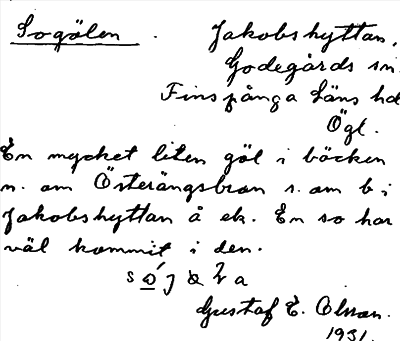 Sogölen . Jakobshyttan,
Godegårds sn.
Finspånga läns hd
Ögl.
En mycket liten göl i bäcken
n. om Österängsbron s. om b i
Jakobshyttan å ek. En so har
väl kommit i den.
Gustaf E. Olsson.
1931.